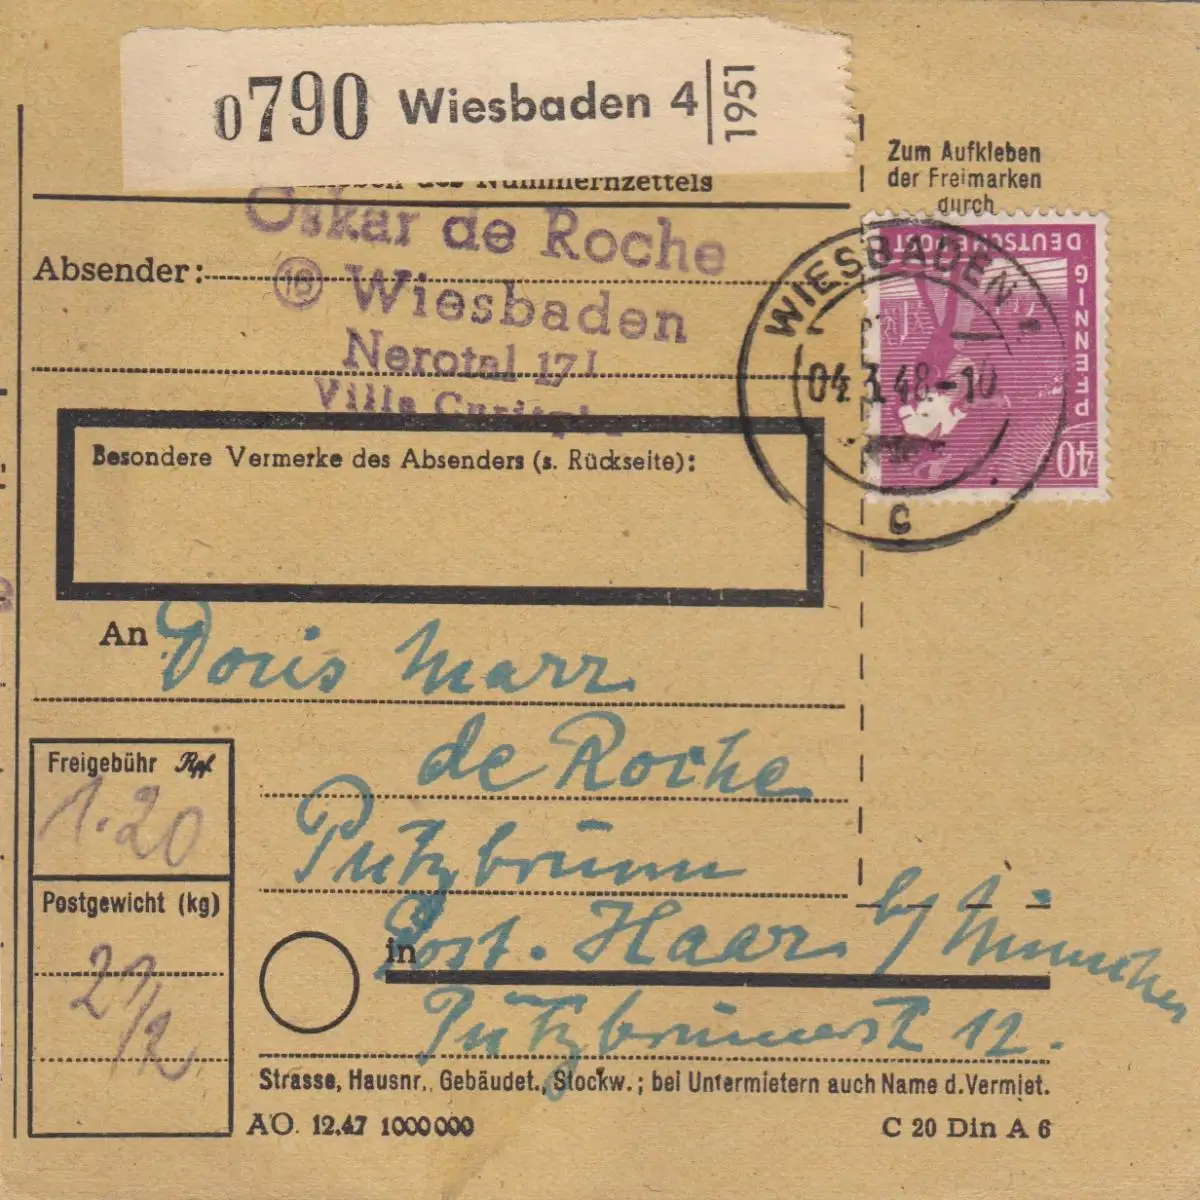 0790 Wiesbaden 4 1951
des Nummernzettels
Zum Aufkleben
der Freimarken
durch
Absender:
Oskar de Roche
16 Wiesbaden
Nerotal 17 I
Villa
DEUTSCHE POST
PFENNIG
40
WIESBADEN
04.3.48.-10
c
Besondere Vermerke des Absenders (s. Rückseite):
An Doris Marr
de Roche
Putzbrunn
in Post. Haar b/ München
Putzbrunnerst 12.
Strasse, Hausnr., Gebäudet., Stockw.; bei Untermietern auch Name d. Vermiet.
Freigebühr Rpf
1.20
Postgewicht (kg)
2 1/2
AO. 12.47 1000000
C 20 Din A 6